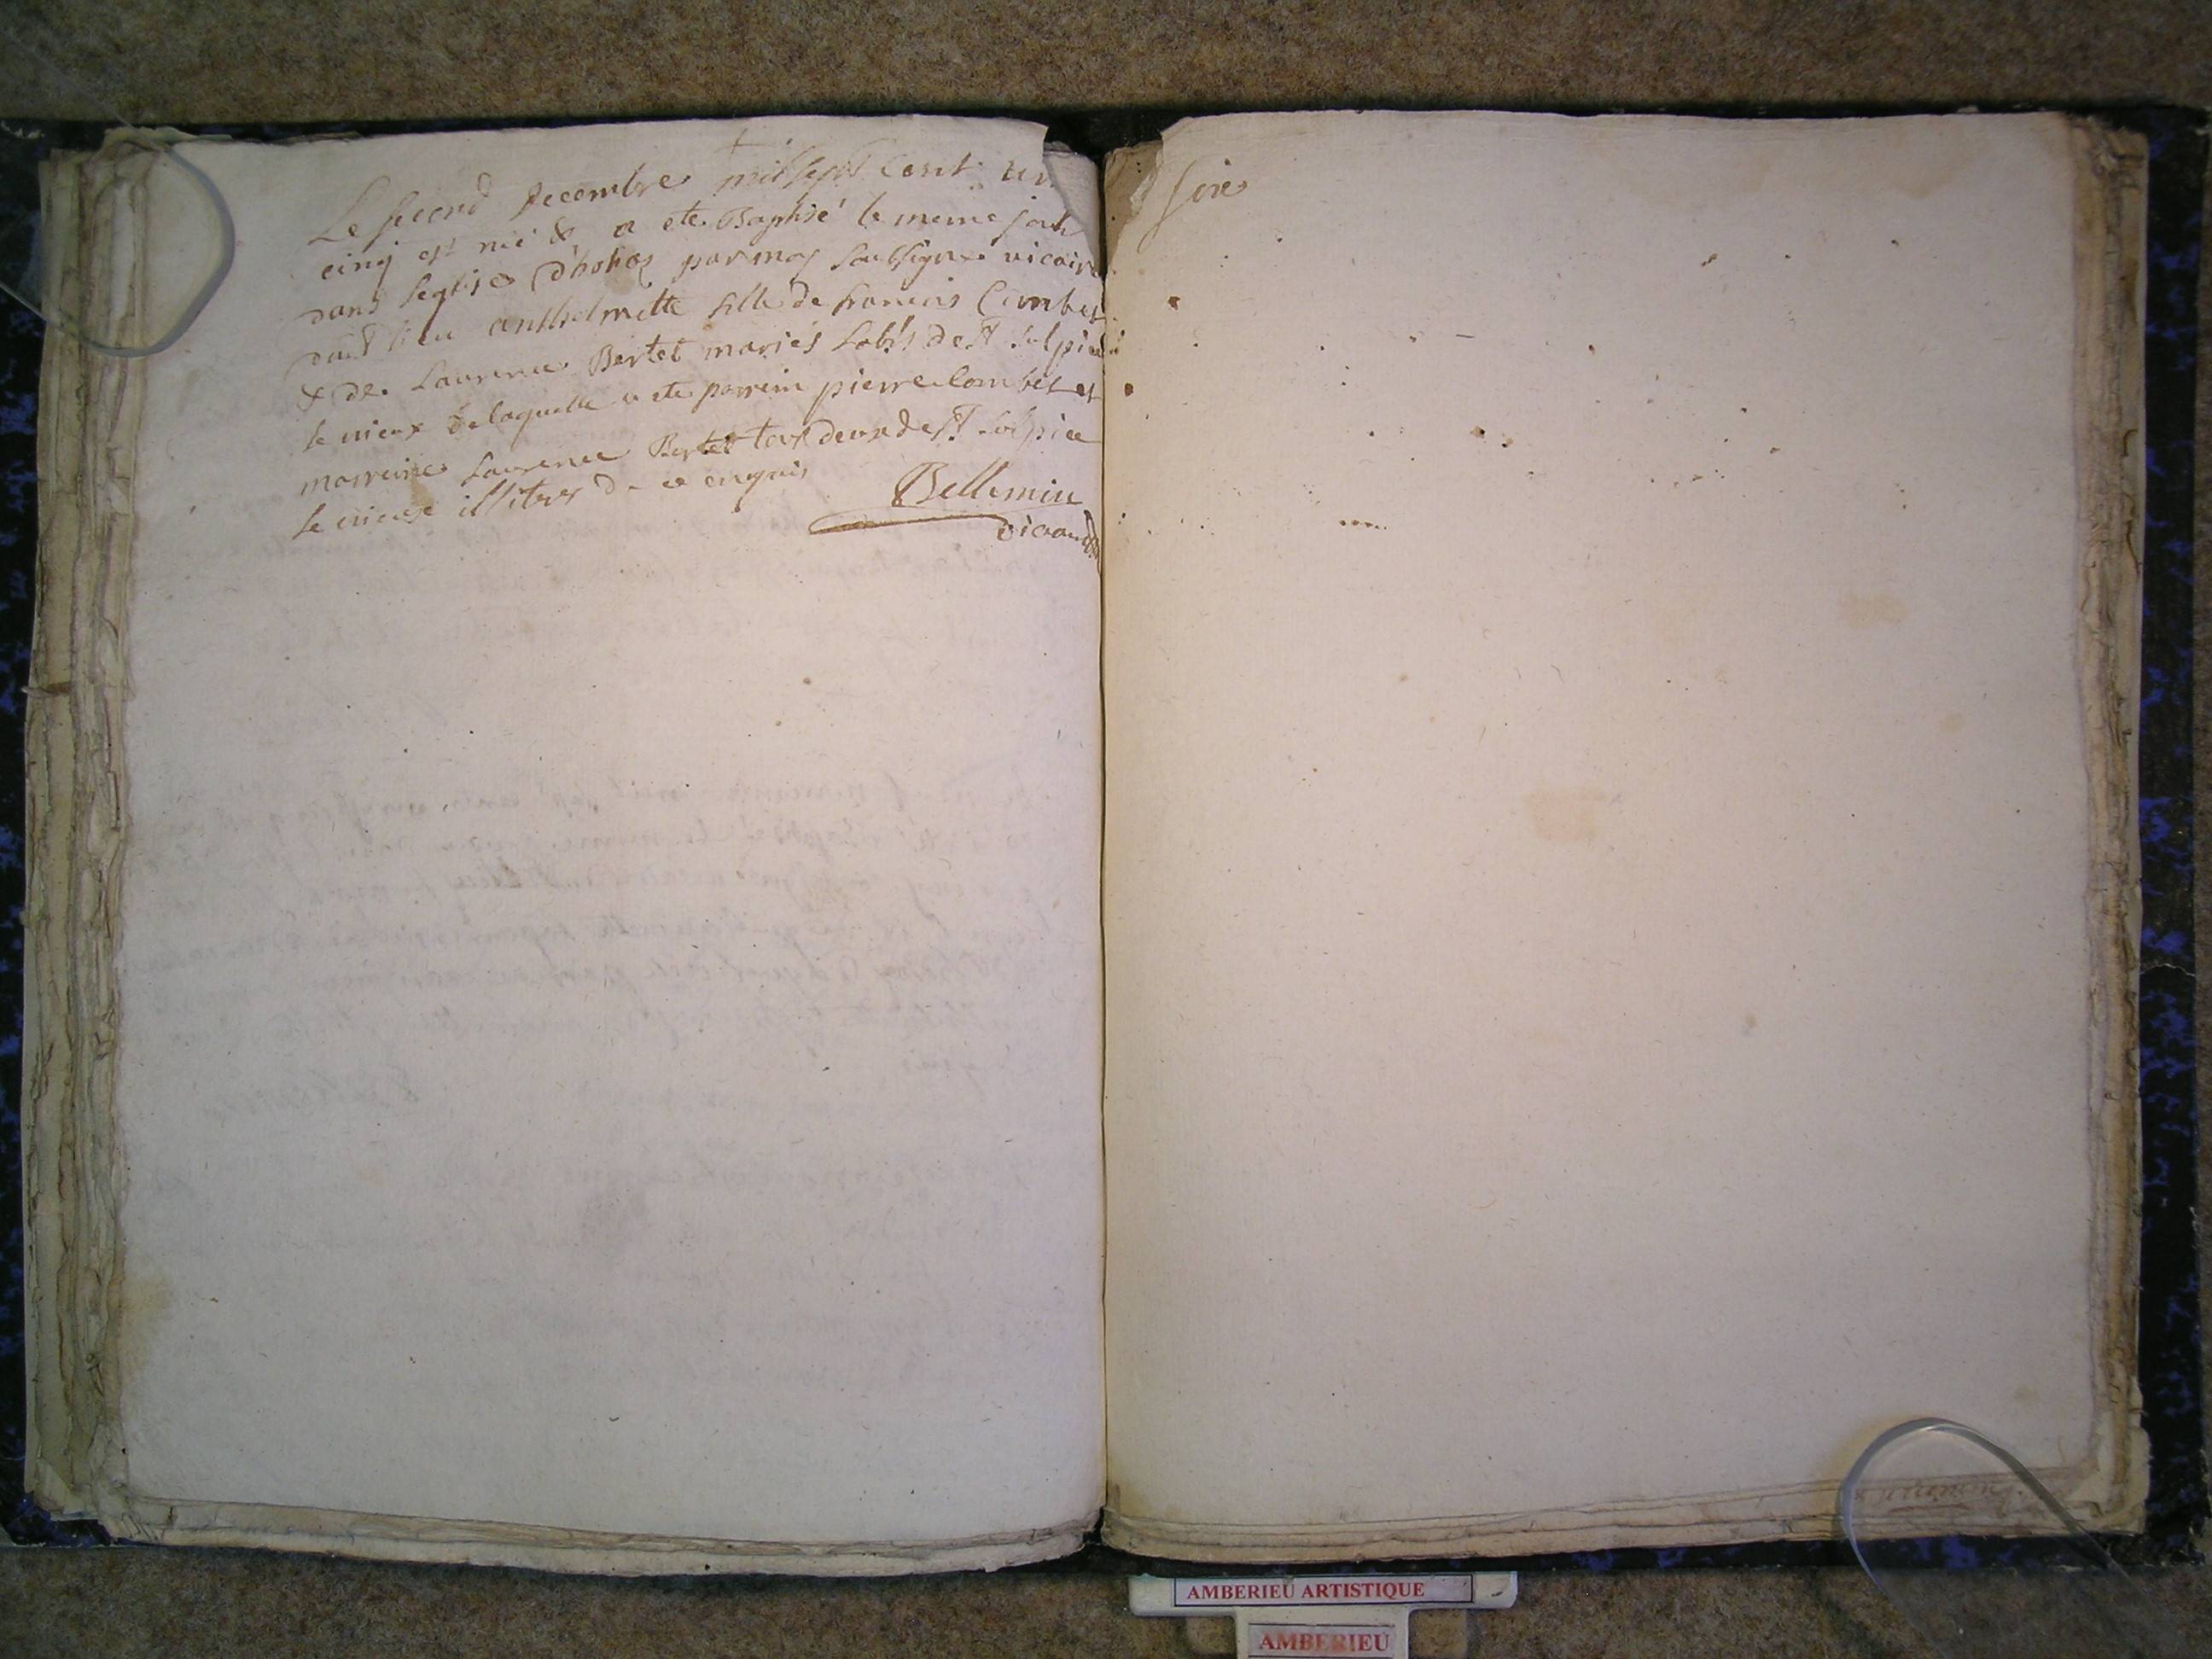 Le second decembre mil sept cent vin
cinq est née & a ete Baptisé le meme jour
dans l'eglise d'hotoz par moy soubsigné vicaire
dudt lieu anthelmette fille de francois Combet
& de Laurence Bertet mariés de St Sulpice
le vieux de laquelle a ete parrein pierre Combet et
marreine Laurence Bertet tous deux de St Sulpice
le vieux illitres de ce enquis
Bellemin
vicaire
AMBERIEU ARTISTIQUE
AMBERIEU